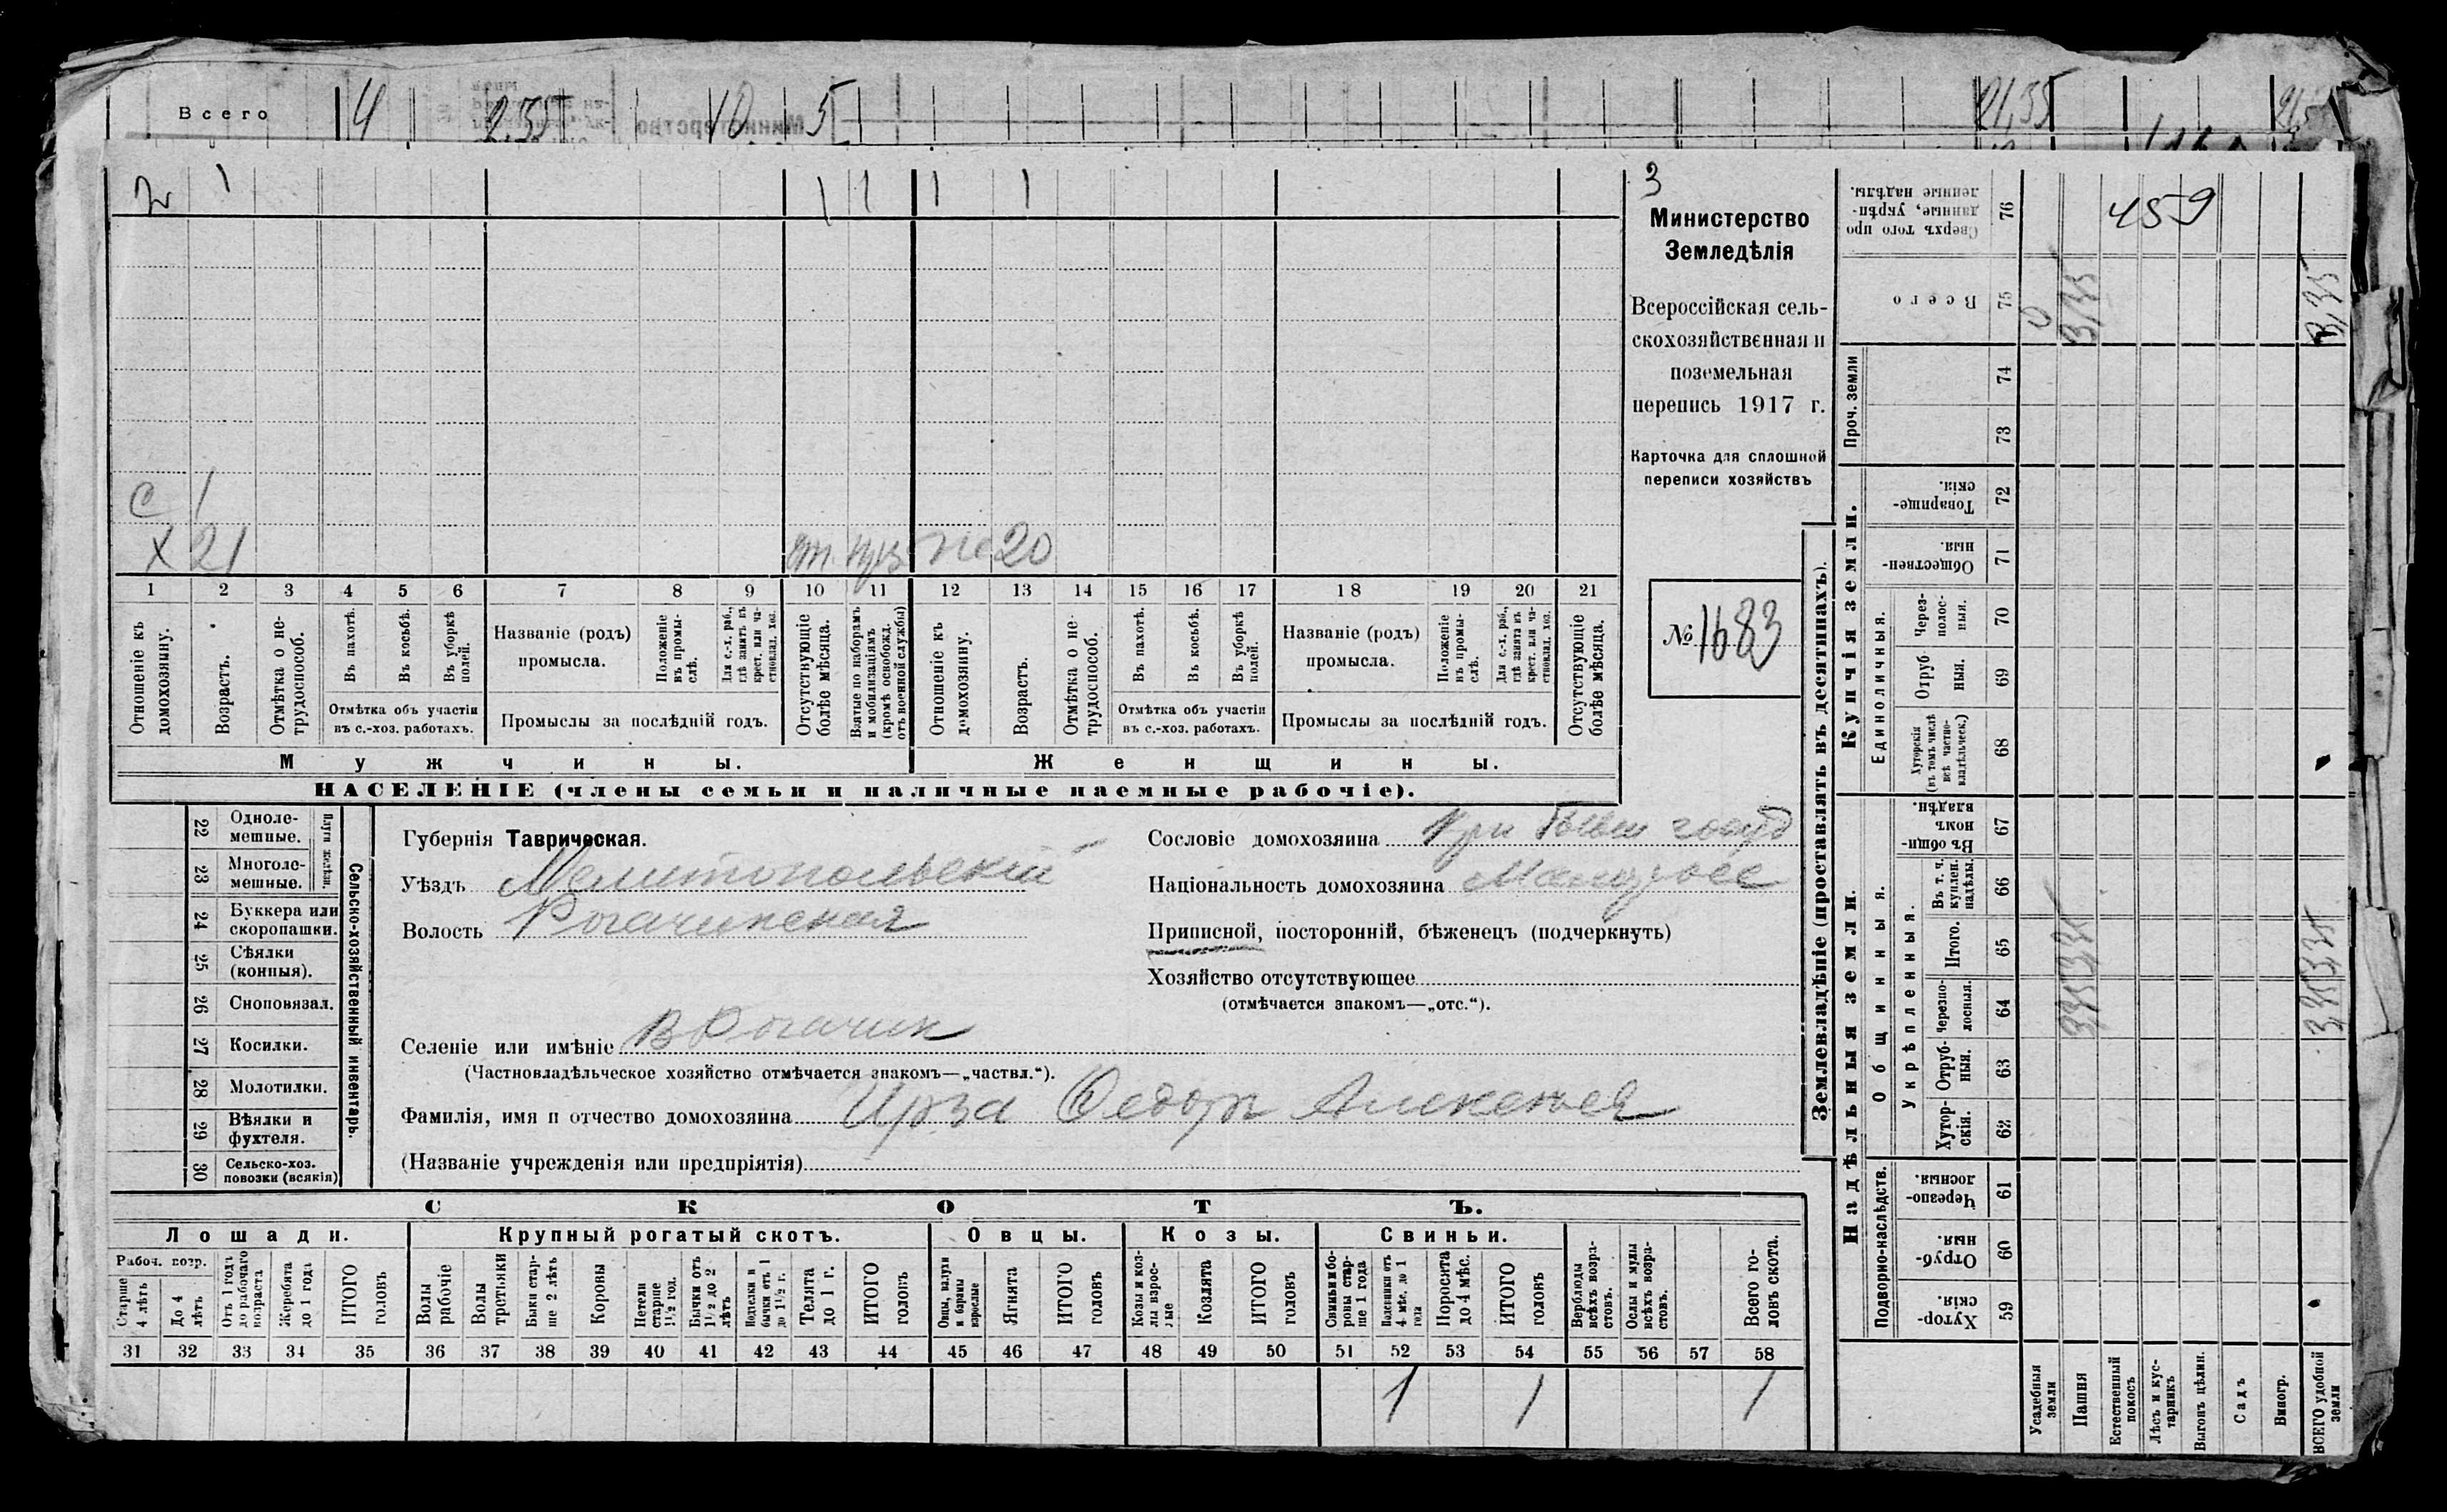 Всего 4 2.55 10 5 21,35
2 1 1 1 1 1
с 1
х 21 от. приз. же 20
1 2 3 4 5 6 7 8 9 10 11 12 13 14 15 16 17 18 19 20 21
Отношеніе къ домохозяину.
Возрастъ.
Отмѣтка о нетрудоспособ.
Въ пахотѣ.
Въ косьбѣ.
Въ уборкѣ полей.
Отмѣтка объ участіи
въ с.-хоз. работахъ.
Названіе (родъ)
промысла.
Положеніе въ промыслѣ.
Для с.-х. раб., гдѣ занятъ въ крест. или частновлад. хоз.
Промыслы за послѣдній годъ.
Отсутствующіе болѣе мѣсяца.
Взятые по наборамъ и мобилизаціямъ (кромѣ освобожд. отъ военной службы)
Отношеніе къ домохозяину.
Возрастъ.
Отмѣтка о нетрудоспособ.
Въ пахотѣ.
Въ косьбѣ.
Въ уборкѣ полей.
Отмѣтка объ участіи
въ с.-хоз. работахъ.
Названіе (родъ)
промысла.
Положеніе въ промыслѣ.
Для с.-х. раб., гдѣ занята въ крест. или частновлад. хоз.
Промыслы за послѣдній годъ.
Отсутствующіе болѣе мѣсяца.
Мужчины. Женщины.
НАСЕЛЕНІЕ (члены семьи и наличные наемные рабочіе).
3
Министерство
Земледѣлія
Всероссійская сель-
скохозяйственная и
поземельная
перепись 1917 г.
Карточка для сплошной
переписи хозяйствъ
№ 1683
Сельско-хозяйственный инвентарь.
Плуги желѣзн.
22 Одноле-
мешные.
23 Многоле-
мешные.
24 Буккера или
скоропашки.
25 Сѣялки
(конныя).
26 Сноповязал.
27 Косилки.
28 Молотилки.
29 Вѣялки и
фухтеля.
30 Сельско-хоз.
повозки (всякія)
Губернія Таврическая.
Уѣздъ Мелитопольскій
Волость Рогачикская
Селеніе или имѣніе В Рогачик
(Частновладѣльческое хозяйство отмѣчается знакомъ—„частвл.“).
Фамилія, имя и отчество домохозяина Ирза Федоръ Алексеев
(Названіе учрежденія или предпріятія)
Сословіе домохозяина бывш госуд
Національность домохозяина Малоросс
Приписной, посторонній, бѣженецъ (подчеркнуть)
Хозяйство отсутствующее
(отмѣчается знакомъ—„отс.“).
СКОТЪ.
Лошади. Крупный рогатый скотъ. Овцы. Козы. Свиньи.
Рабоч. возр.
Старше 4 лѣтъ
До 4 лѣтъ
Отъ 1 года до рабочаго возраста
Жеребята до 1 года
ИТОГО головъ
Волы рабочіе
Волы третьяки
Быки старше 2 лѣтъ
Коровы
Нетели старше 1½ год.
Бычки отъ 1½ до 2 лѣтъ
Подтелки и бычки отъ 1 до 1½ г.
Телята до 1 г.
ИТОГО головъ
Овцы, валухи и бараны взрослые
Ягнята
ИТОГО головъ
Козы и козлы взрослые
Козлята
ИТОГО головъ
Свиньи и боровы старше 1 года
Подсвинки отъ 4 мѣс. до 1 года
Поросята до 4 мѣс.
ИТОГО головъ
Верблюды всѣхъ возрастовъ.
Ослы и мулы всѣхъ возрастовъ.
Всего головъ скота.
31 32 33 34 35 36 37 38 39 40 41 42 43 44 45 46 47 48 49 50 51 52 53 54 55 56 57 58
1 1 1
Землевладѣніе (проставлять въ десятинахъ).
Надѣльныя земли.
Купчія земли.
Проч. земли
Подворно-наслѣдств.
Общинныя.
Укрѣпленныя.
Единоличныя.
Сверхъ того проданные, укрѣпленные надѣлы. 76 459
Всего 75 3,35 3,35
74
73
Товарищескія. 72
Общественныя. 71
Черезполосныя. 70
Отрубныя. 69
Хуторскія (въ томъ числѣ всѣ частновладѣльческ.) 68
Въ общинномъ владѣн. 67
Въ т. ч. куплен. надѣлы. 66
Итого. 65 3,35 3,35
Черезполосныя. 64 3,35 3,35
Отрубныя. 63
Хуторскія. 62
Черезполосныя. 61
Отрубныя. 60
Хуторскія. 59
Усадебныя земли
Пашня
Естественный покосъ
Лѣсъ и кустарникъ
Выгонъ цѣлин.
Садъ
Виногр.
ВСЕГО удобной земли